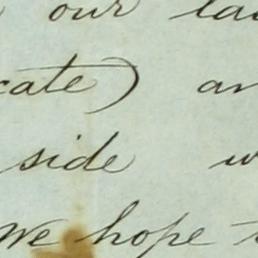 our
cate)
side
We hope